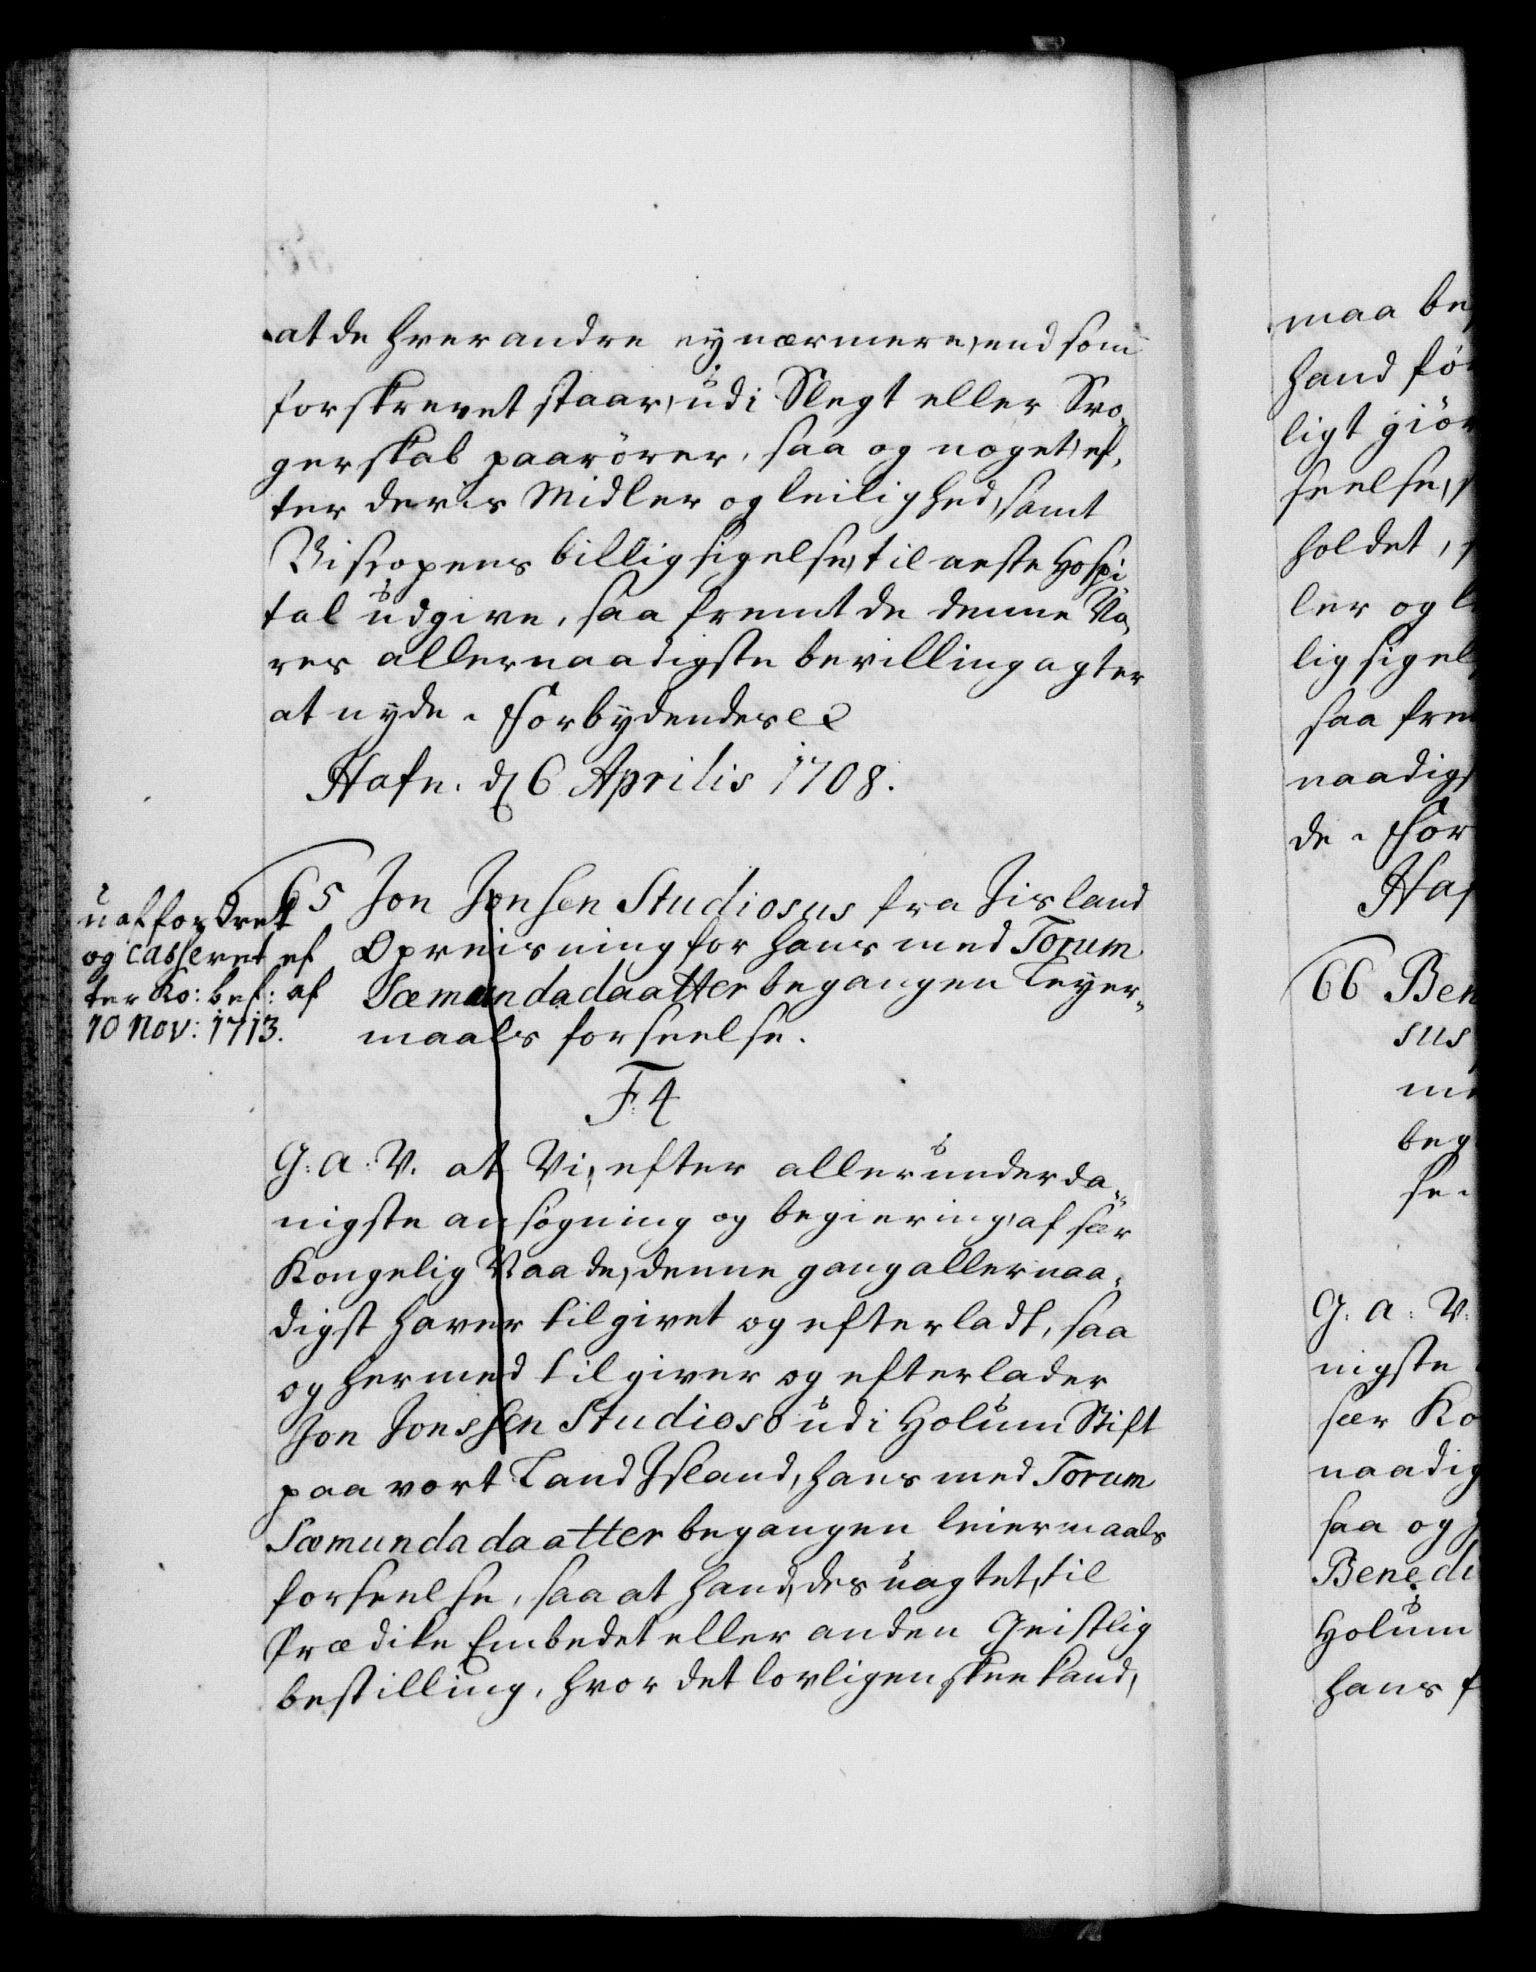 at de hver andre ey nærmere, end som
forskrevet staar, udi Slegt eller Svo-
gerskab paarörer, saa og noget, ef-
ter deris Midler og leilighed, samt
Biscopens billigsigelse, til neste Hospi
tal udgive, saa fremt de denne Vo-
res allernaadigste bevilling agter
at nyde. Forbydendes &c
Hafn. d 6 Aprilis 1708.
uaffordret
og casseret ef
ter Ko: bef: af
10 Nov: 1713.
65 Jon Jonsen Studiosus fra Jisland
Opreisning for hans med Torum
Sæmundadaatter begangen Leyer-
maals forseelse.
F. 4
G: a: V. at Vi, efter allerunderda-
nigste ansögning og begiering, af sær
Kongelig Naade, denne gang allernaa-
digst haver tilgivet og efterladt, saa
og hermed tilgiver og efterlader
Jon Jonssen Studioso udi Holum Stift
paa vort Land Jsland, hans med Torum
Sæmundadaatter begangen leiermaals
forseelse, saa at hand, des uagtet, til
Prædike Embedet eller anden Geistlig
bestilling, hvor det lovligen skee kand,
maa be
hand fö
ligt giör
seelse, 
holdet, 
ler og l
lig sigel
saa frem
naadigs
de. For
Haf
66 Ben
sus
me
beg
se.
G: a: V:
nigste
sær Ko
naadig
saa og h
Benedi
Holum
hans f